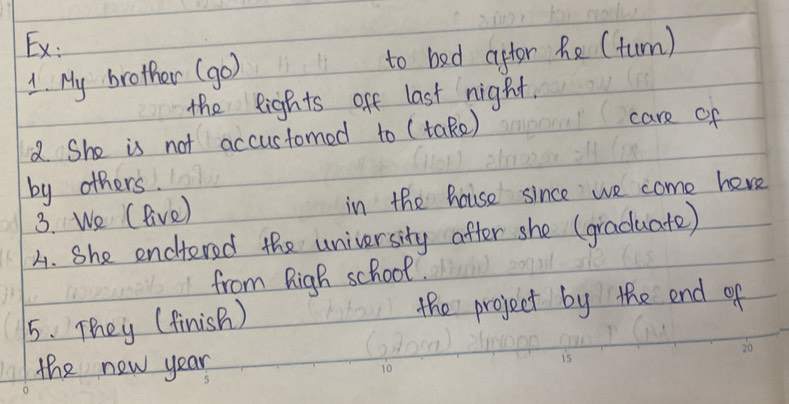 Ex:
1. My brother (go) to bed after he (turn)
the lights off last night.
2 She is not accustomed to (take) care of
by others.
3. We (live) in the house since we come here
4. She enctered the university after she (graduate)
from high school.
5. They (finish) the project by the end of
the new year
0 5 10 15 20